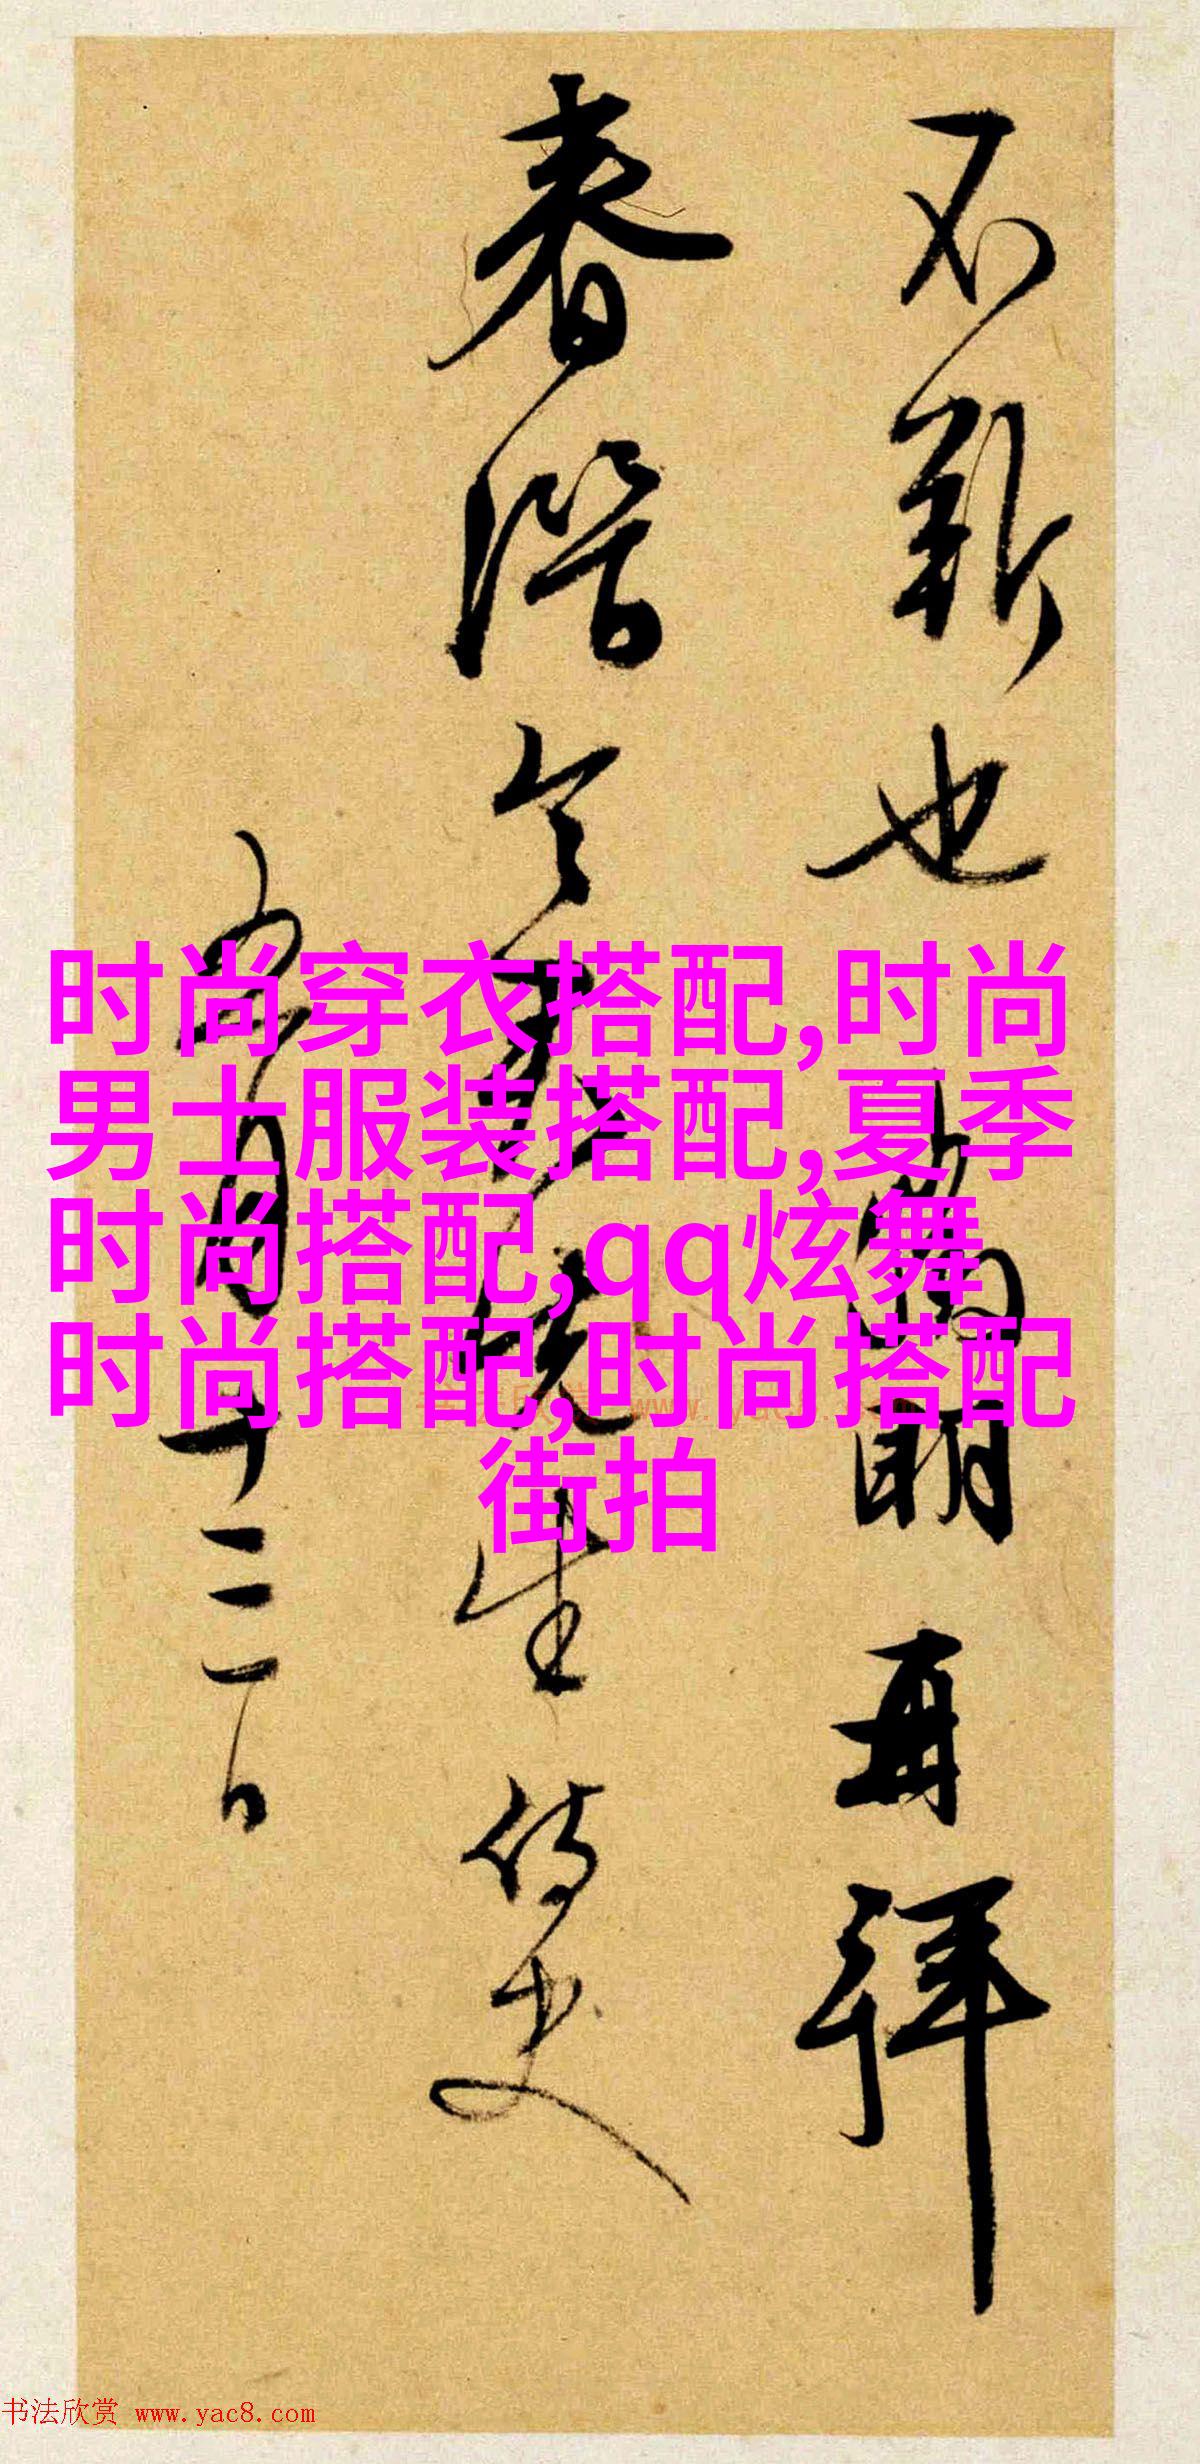 不斩也
再拜
春潜
先生侍史
五月十三日
时尚穿衣搭配,时尚
男士服装搭配,夏季
时尚搭配,qq炫舞
时尚搭配,时尚搭配
街拍
书法欣赏 www.yac8.com